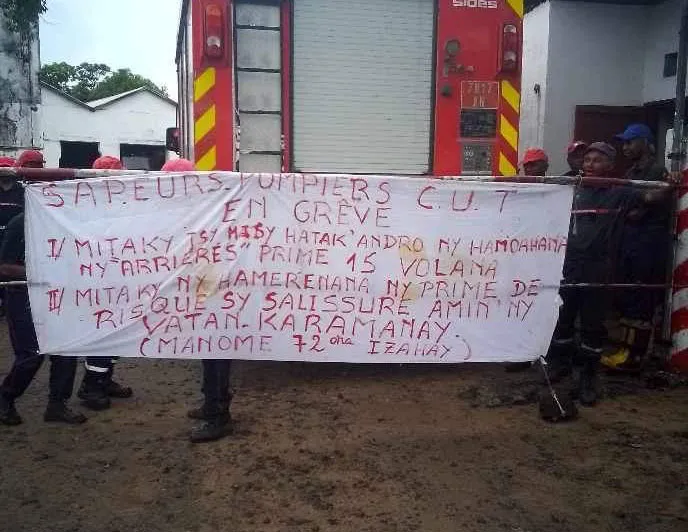 sides
7817
AN
SAPEURS-POMPIERS C.U.T
EN GRÈVE
I/ MITAKY TSY MISY HATAK'ANDRO NY HAMOAHANA
NY "ARRIÉRÉS" PRIME 15 VOLANA
II/ MITAKY NY HAMERENANA NY PRIME DE
RISQUE SY SALISSURE AMIN'NY
VATAN-KARAMANAY.
(MANOME 72 ora IZAHAY)